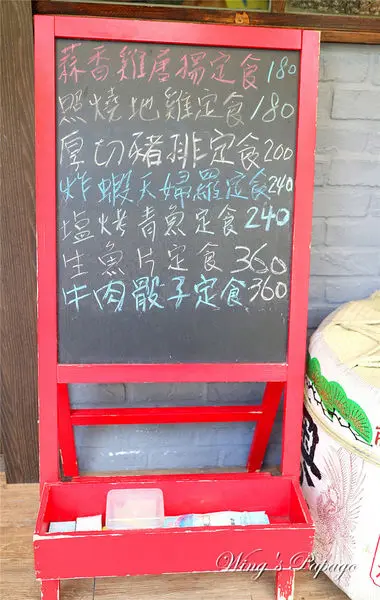 蒜香雞唐揚定食 180
照燒地雞定食 180
厚切豬排定食 200
炸蝦天婦羅定食 240
塩烤青魚定食 240
生魚片定食 360
牛肉骰子定食 360
Wing's Papago